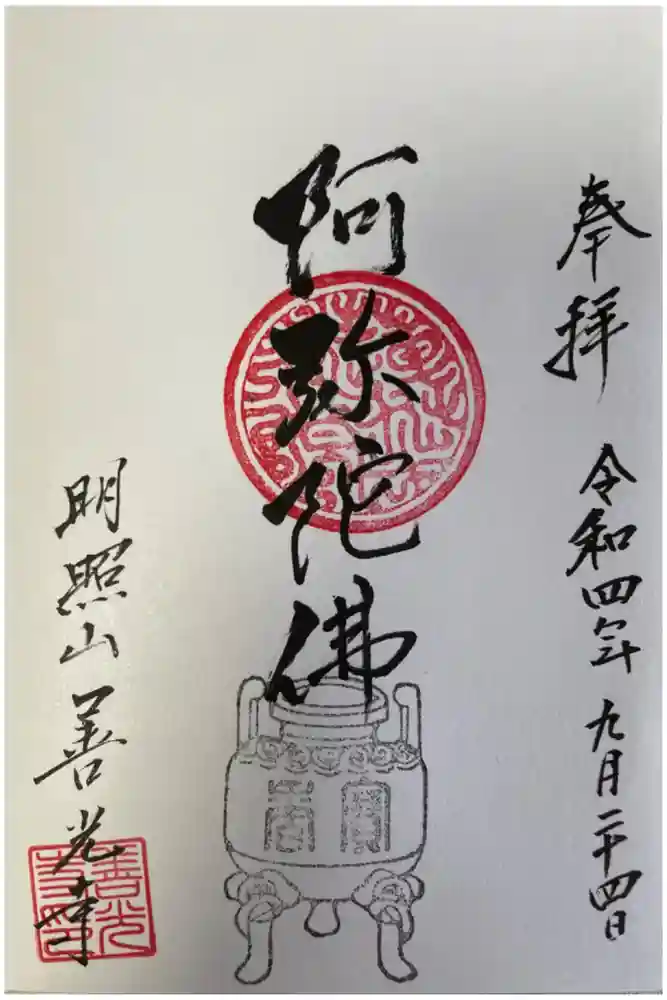 奉拝
令和四年九月二十四日
阿弥陀佛
明照山善光寺